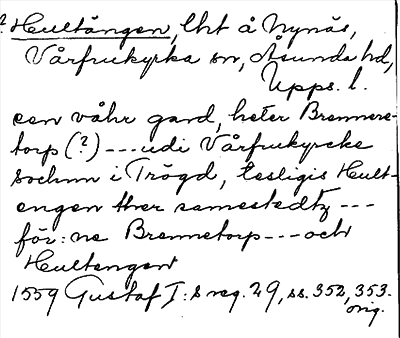 ? Hultängen, lht å Nynäs,
Vårfrukyrka sn, Åsunda hd,
Upps. l.
een våhr gard, heter Brennere-
torp (?) --- udi Vårfrukyrcke
sochnn i Trögd, tesligis Hult-
engen ther samestedtz ---
för:ne Brennetorp --- och
Hultengen
1559 Gustaf I:s reg. 29, ss. 352, 353.
orig.